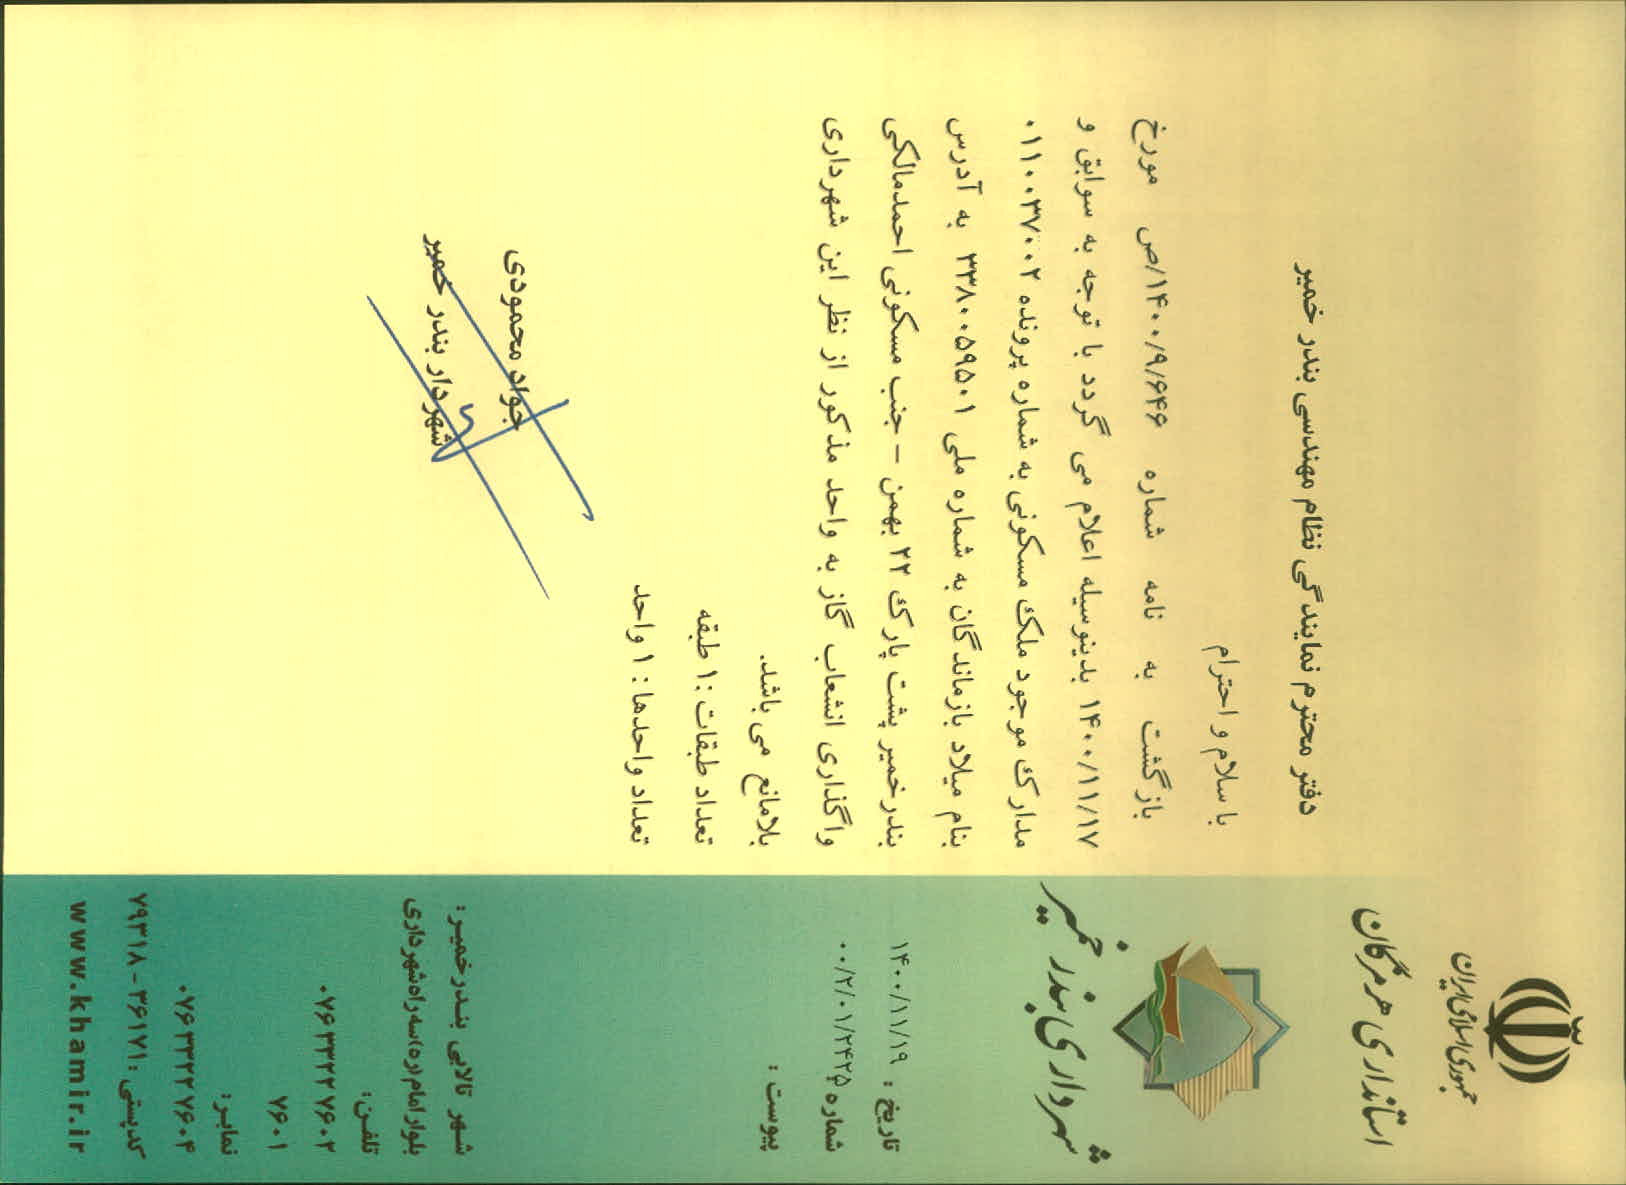 جمهوری اسلامی ایران
استانداری هرمزگان
شهرداری بندر خمیر
تاریخ : ۱۴۰۰/۱۱/۱۹
شماره ۰۰/۲/۰۱/۲۴۲۵
پیوست :
دفتر محترم نمایندگی نظام مهندسی بندر خمیر
با سلام و احترام
بازگشت به نامه شماره ۱۴۰۰/۹/۶۴۶/ص مورخ
۱۴۰۰/۱۱/۱۷ بدینوسیله اعلام می گردد با توجه به سوابق و
مدارک موجود ملک مسکونی به شماره پرونده ۰۱۱۰۰۳۷۰۰۲
بنام میلاد بازماندگان به شماره ملی ۳۳۸۰۰۵۹۵۰۱ به آدرس
بندرخمیر پشت پارک ۲۲ بهمن – جنب مسکونی احمدمالکی
واگذاری انشعاب گاز به واحد مذکور از نظر این شهرداری
بلامانع می باشد.
تعداد طبقات :۱ طبقه
تعداد واحدها : ۱ واحد
جواد محمودی
شهردار بندر خمیر
شهر تالابی بندرخمیر :
بلوار امام (ره) سه راه شهرداری
تلفن :
۰۷۶۳۳۲۲۷۶۰۲
۷۶۰۱
نمابر :
۰۷۶۳۳۲۲۷۶۰۴
کدپستی : ۳۶۱۷۱ - ۷۹۳۱۸
www.khamir.ir